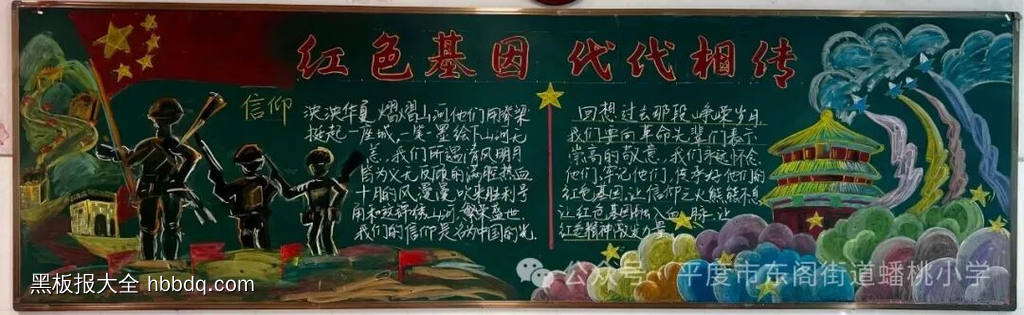 红色基因 代代相传
信仰
泱泱华夏 熠熠山河他们用脊梁
挺起一座城,一笔一墨绘下山河无
恙,我们所遇清风明月
皆为义无反顾的满腔热血
十月的风漫漫吹来胜利号
我们的信仰是名为中国的光
回想过去那段峥嵘岁月
我们要向革命先辈们表示
崇高的敬意,我们永远怀念
他们,牢记他们,传承好他们的
红色基因,让信仰之火熊熊不息
让红色基因融入血脉,让
红色精神激发力量
黑板报大全 hbbdq.com
公众号 平度市东阁街道蟠桃小学